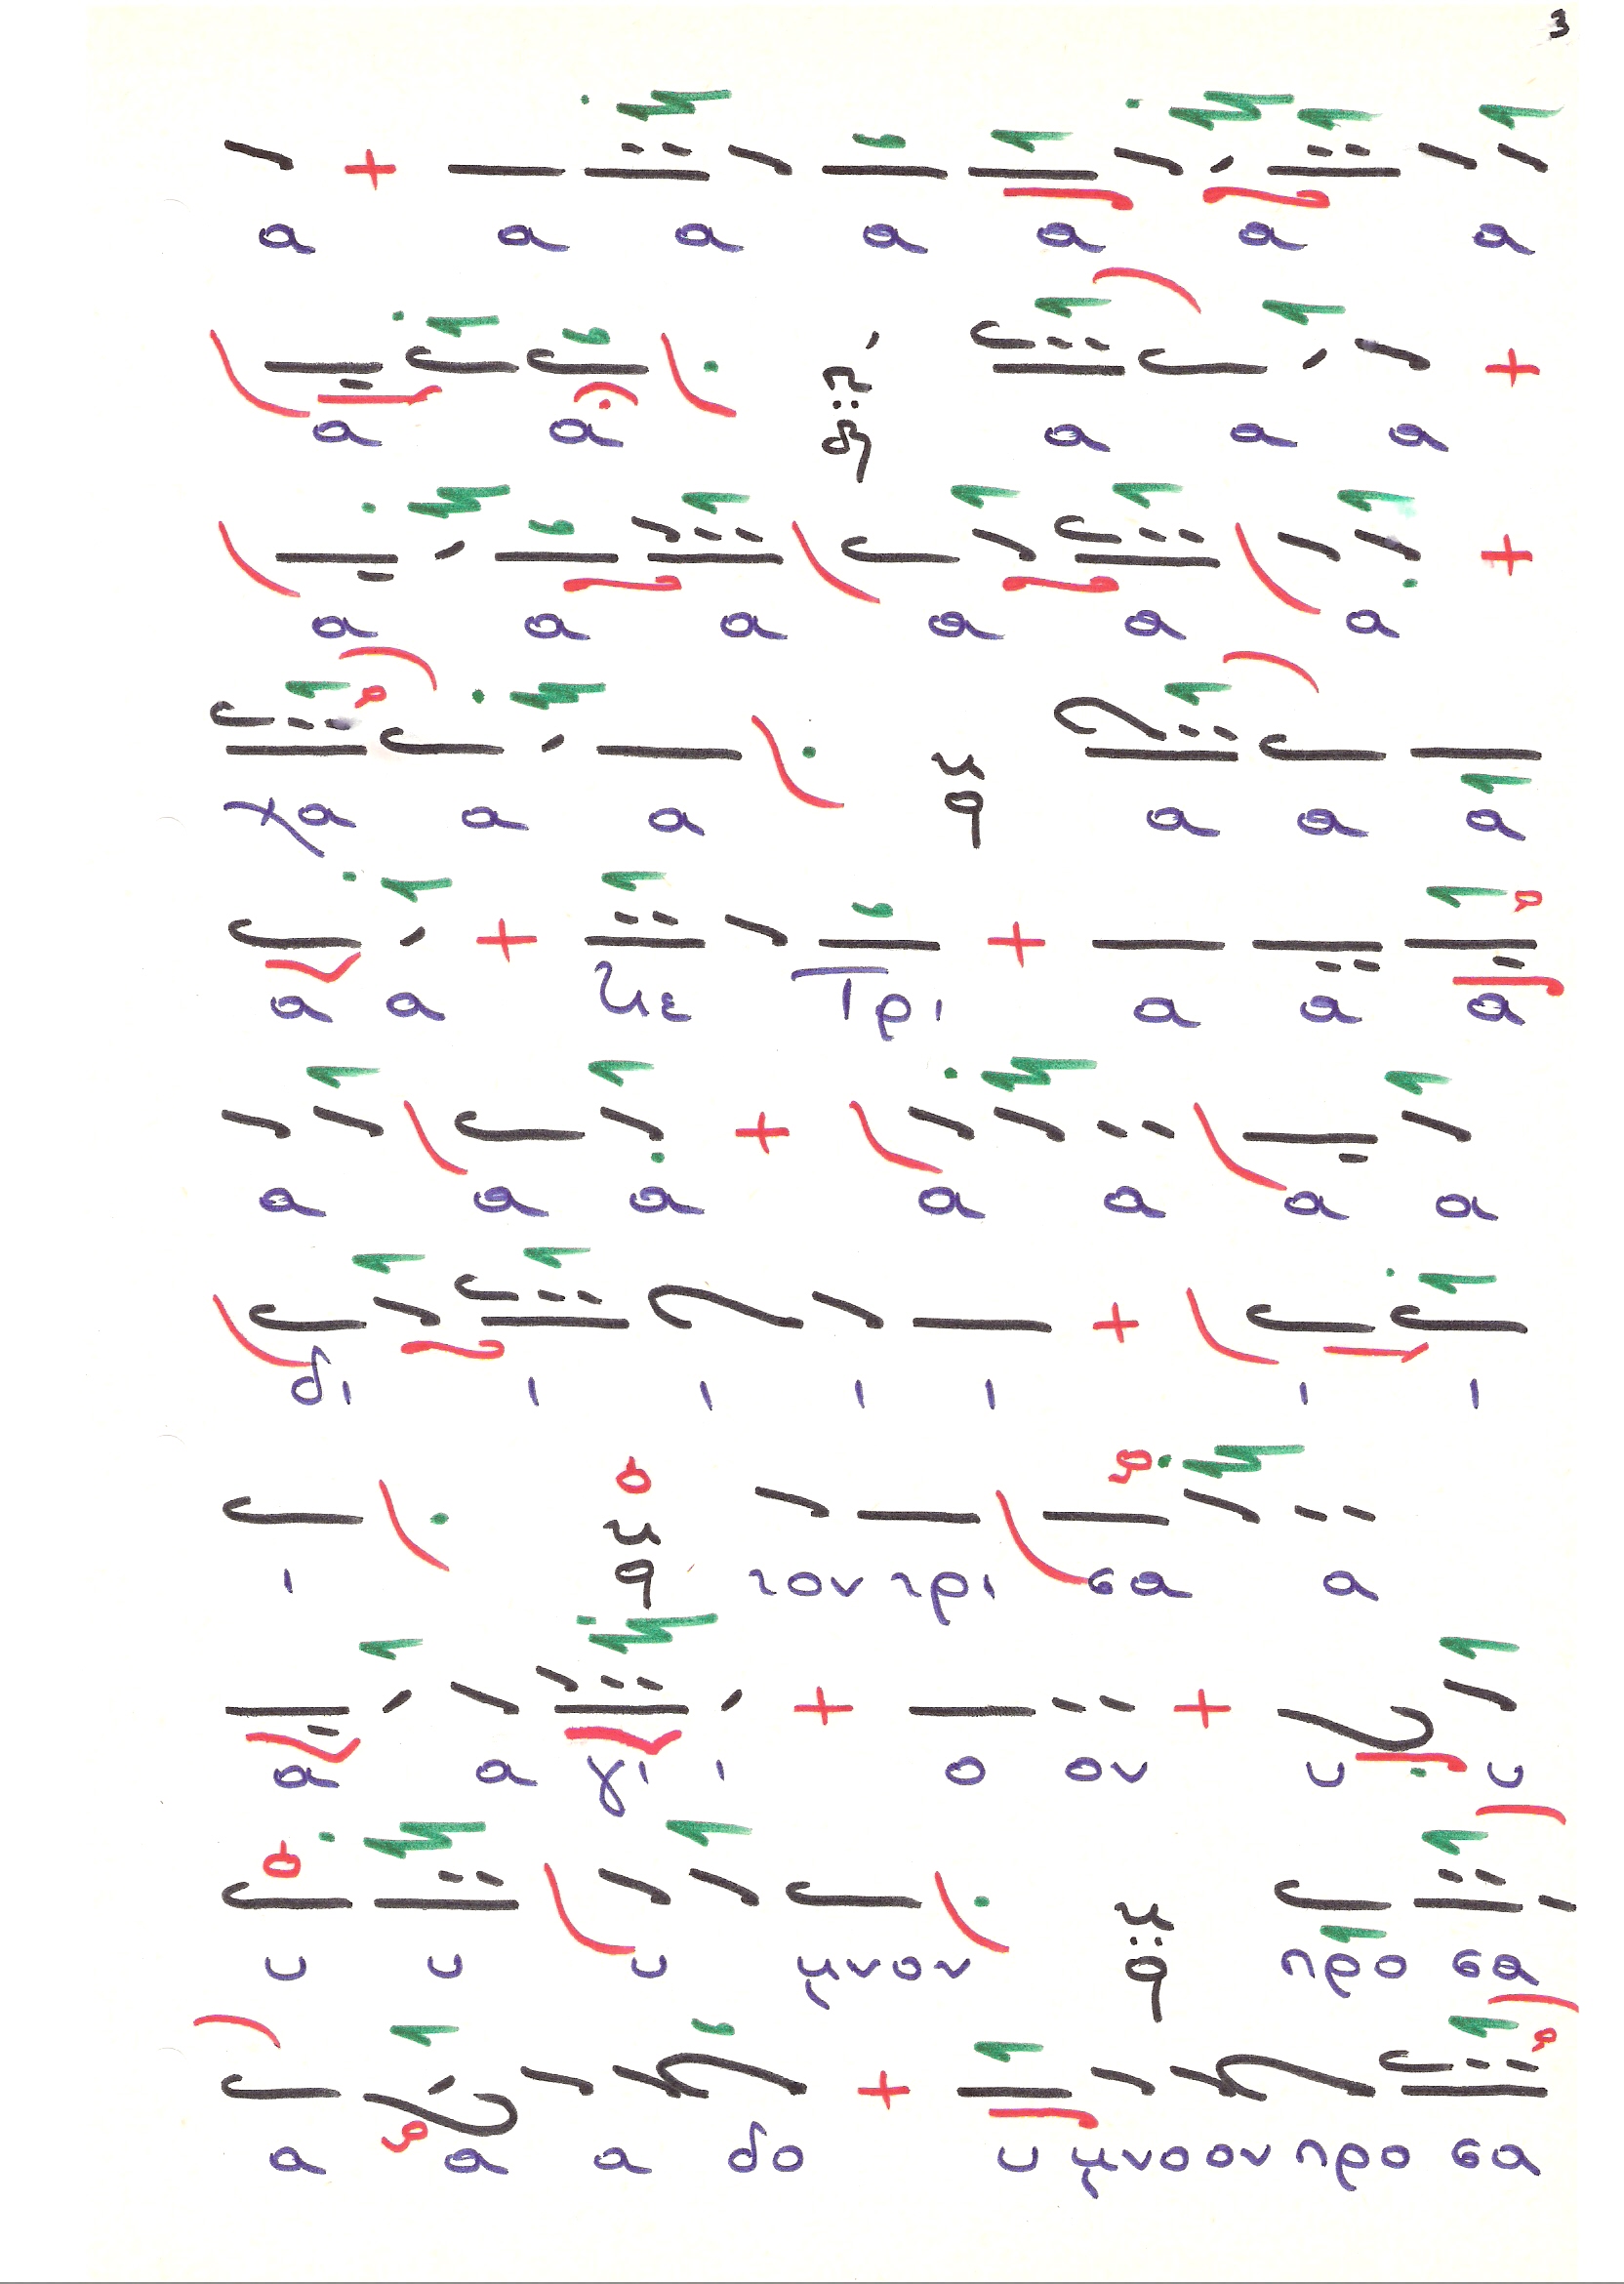 3
α α α α α α α
α α π δη α α α
α α α α α α
χα α α q α α α
α α τρι α α α
α α α α α α α
δι ι ι ι ι ι ι
ι q τον τρι σα α
α α γι ι ο ον υ υ
υ υ υ μνον q προ σα
α α α δο υ μνο ον προ σα